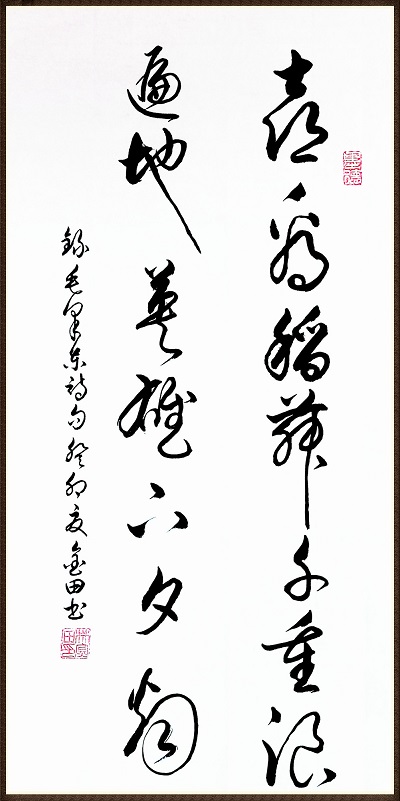 喜看稻菽千重浪
遍地英雄下夕烟
錄毛澤東詩句癸卯夏金田書